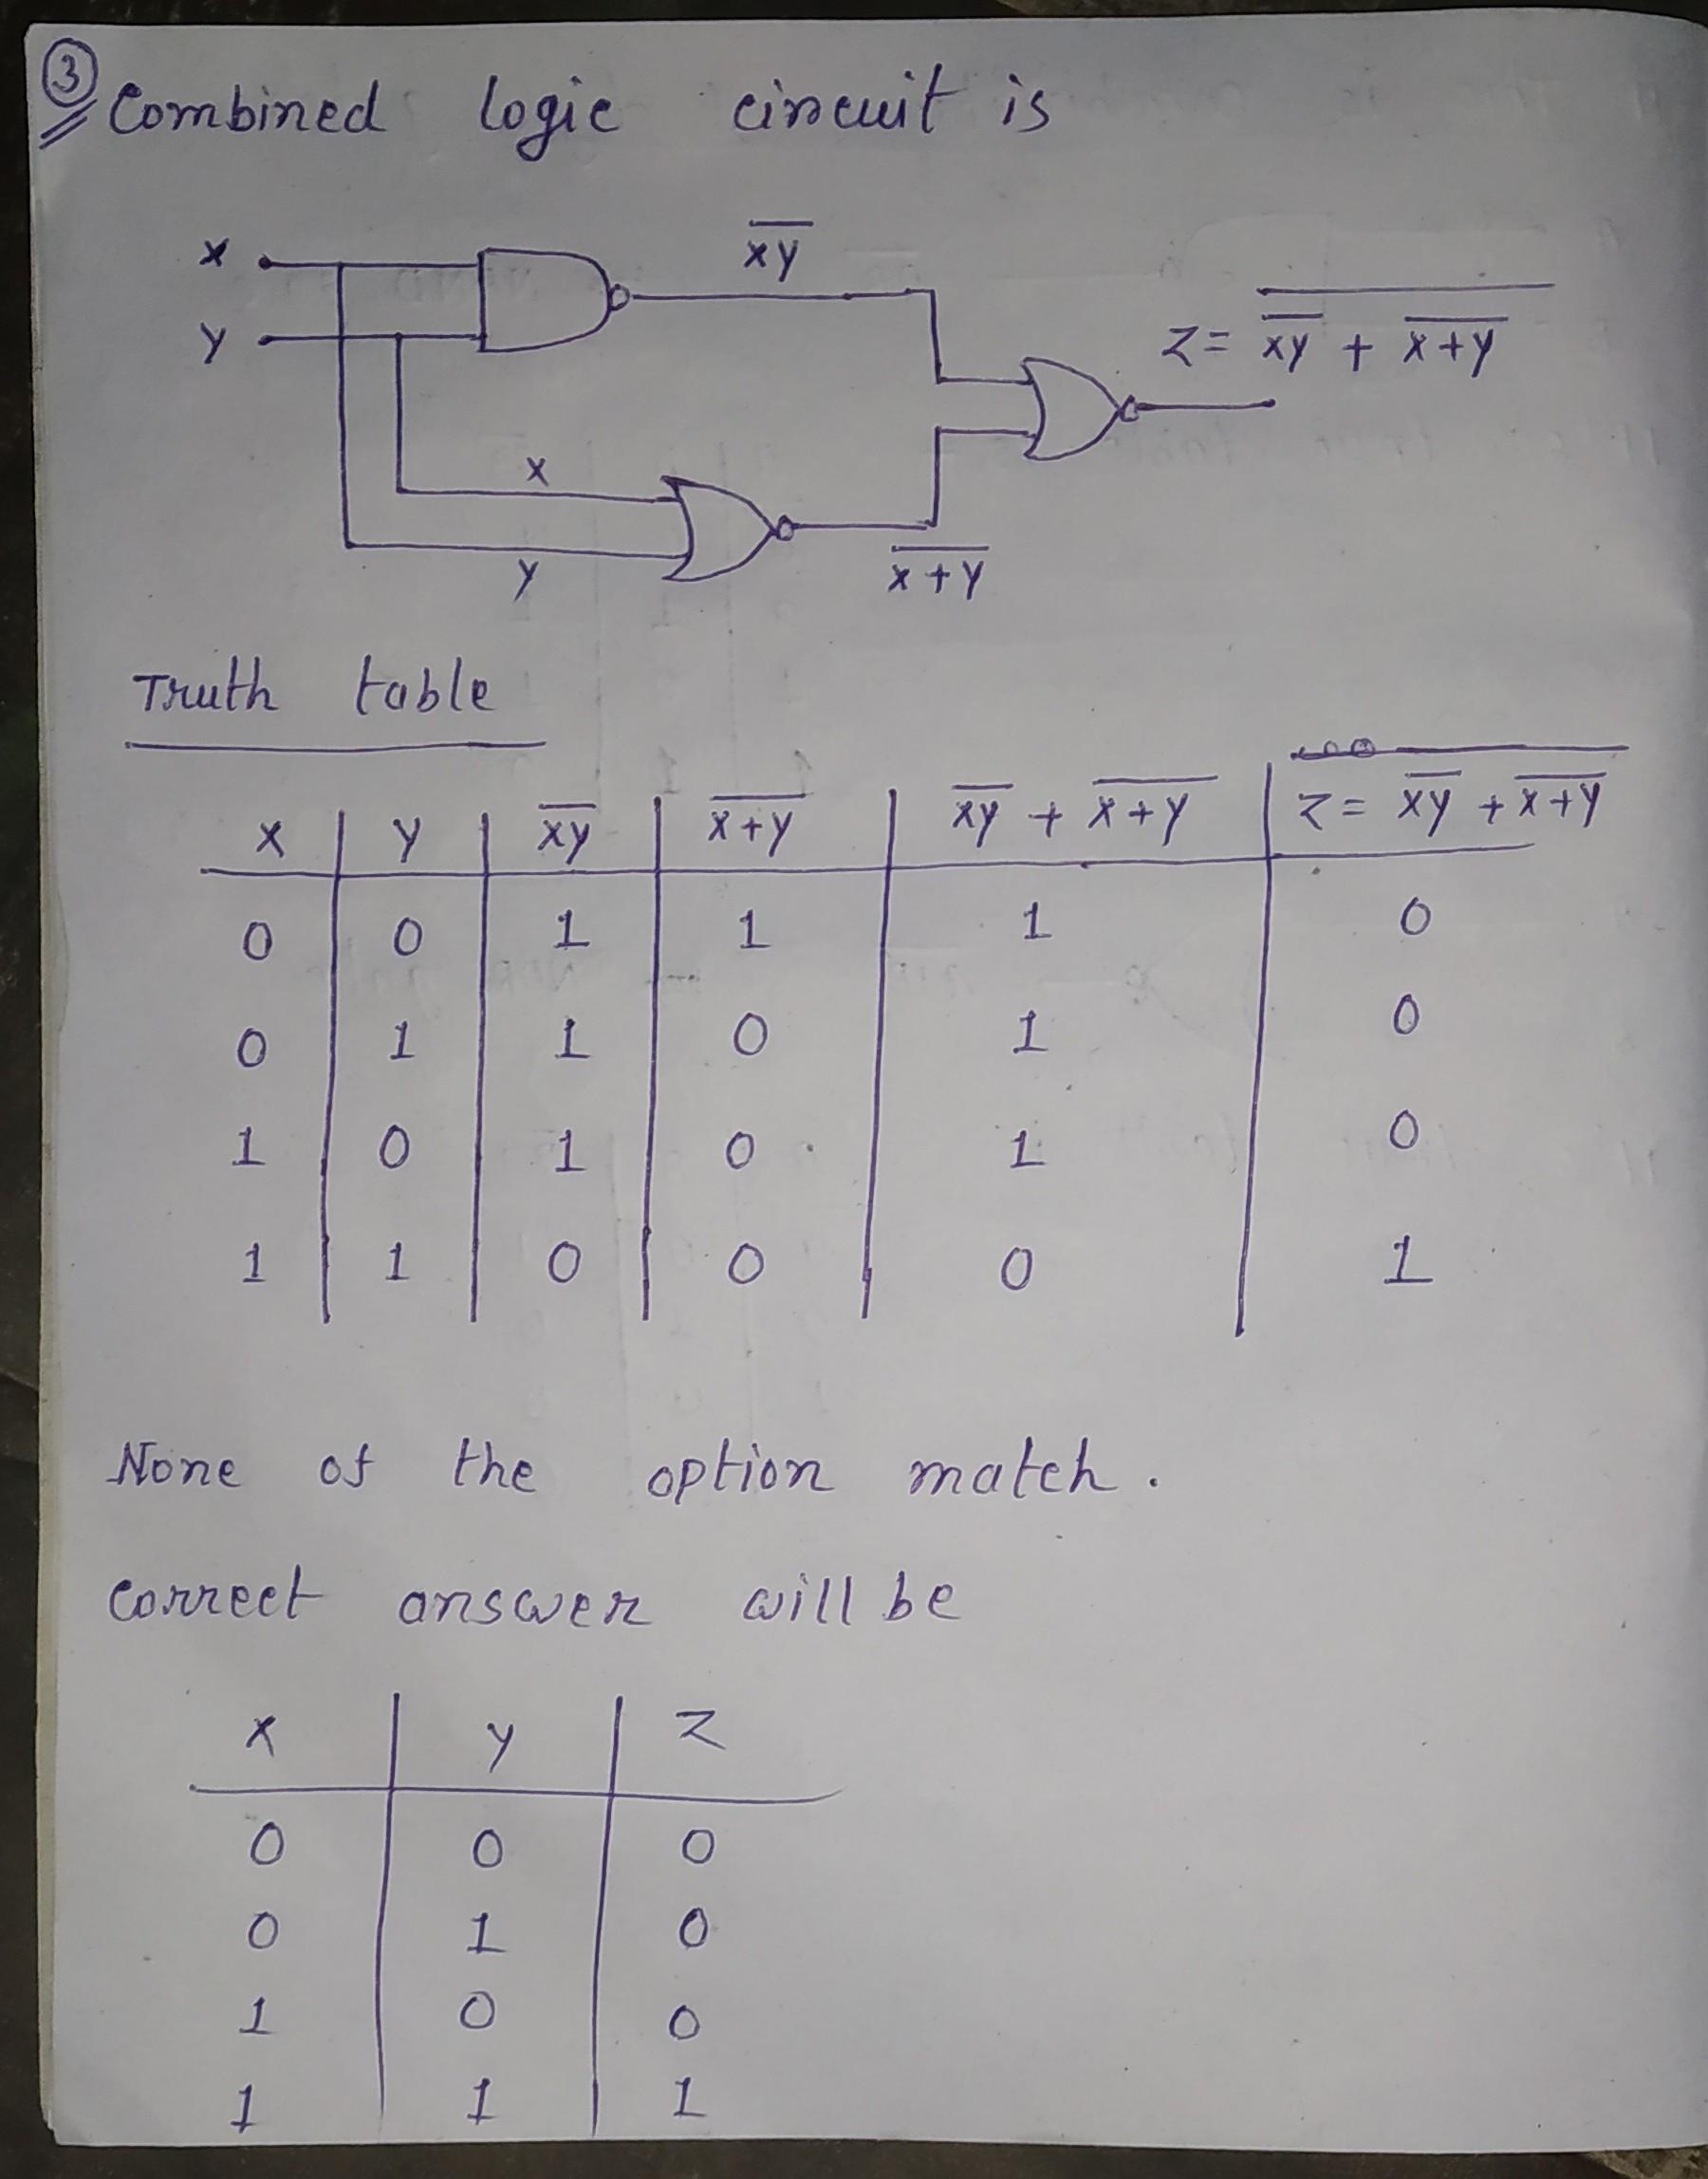 ③ Combined logic circuit is
X
Y
x̅y̅
Z = x̅y̅ + x̅+̅y̅
X
Y
x̅+̅y̅
Truth table
X Y x̅y̅ x̅+̅y̅ x̅y̅ + x̅+̅y̅ Z = x̅y̅ + x̅+̅y̅
0 0 1 1 1 0
0 1 1 0 1 0
1 0 1 0 1 0
1 1 0 0 0 1
None of the option match.
Correct answer will be
X Y Z
0 0 0
0 1 0
1 0 0
1 1 1